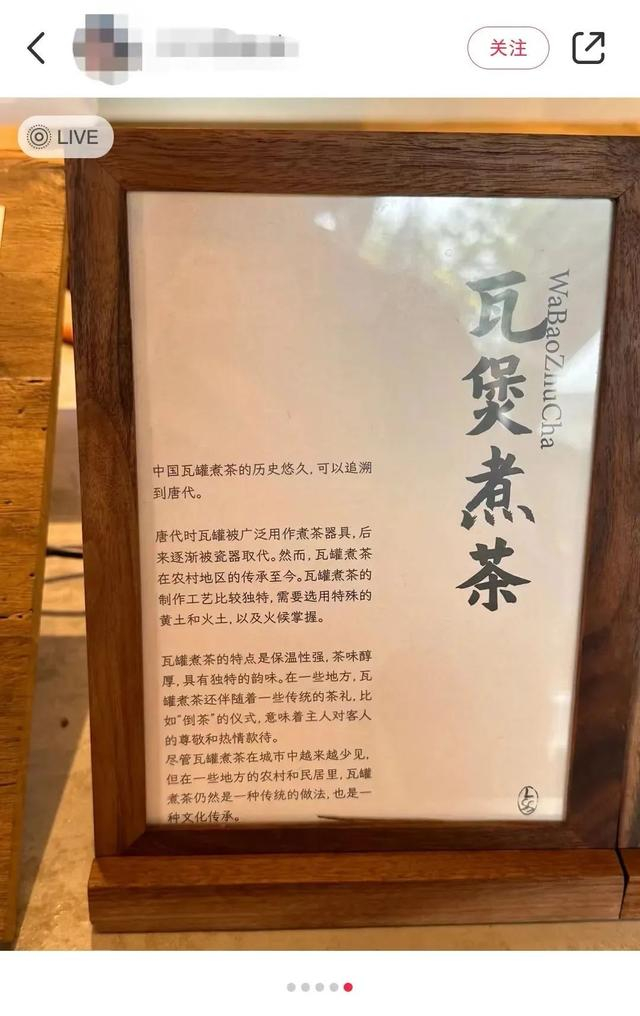 关注
LIVE
瓦煲煮茶
WaBaoZhuCha
中国瓦罐煮茶的历史悠久，可以追溯
到唐代。
唐代时瓦罐被广泛用作煮茶器具，后
来逐渐被瓷器取代。然而，瓦罐煮茶
在农村地区的传承至今。瓦罐煮茶的
制作工艺比较独特，需要选用特殊的
黄土和火土，以及火候掌握。
瓦罐煮茶的特点是保温性强，茶味醇
厚，具有独特的韵味。在一些地方，瓦
罐煮茶还伴随着一些传统的茶礼，比
如“倒茶”的仪式，意味着主人对客人
的尊敬和热情款待。
尽管瓦罐煮茶在城市中越来越少见，
但在一些地方的农村和民居里，瓦罐
煮茶仍然是一种传统的做法，也是一
种文化传承。